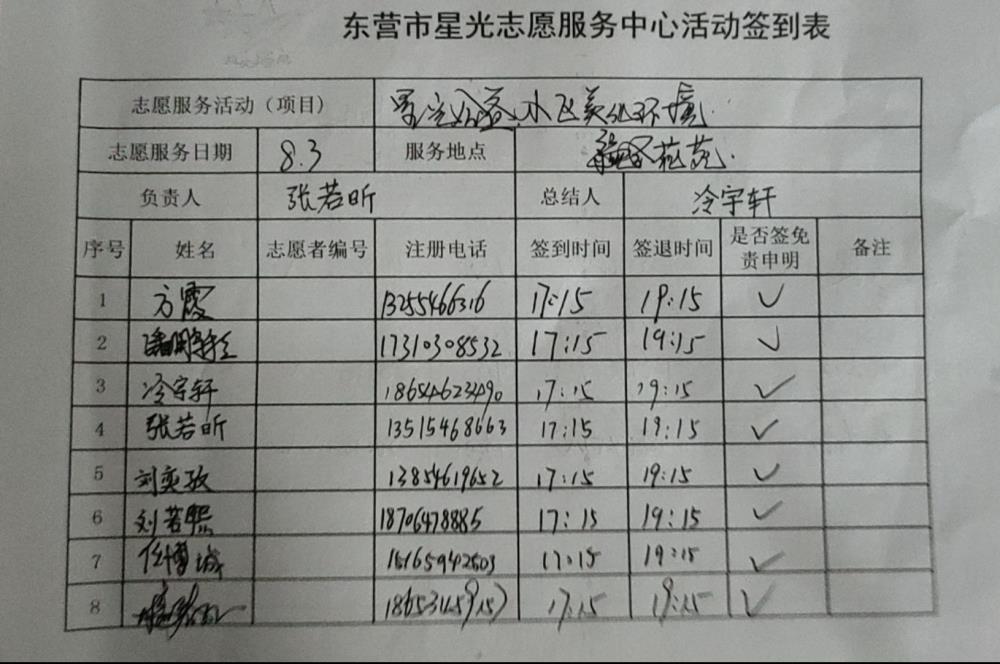 东营市星光志愿服务中心活动签到表
志愿服务活动（项目） 星光公益 小区美化环境
志愿服务日期 8.3 服务地点 苑
负责人 张若昕 总结人 冷宇轩
序号 姓名 志愿者编号 注册电话 签到时间 签退时间 是否签免责申明 备注
1 方霞 13255466316 17:15 19:15 ✓
2 17310308532 17:15 19:15 ✓
3 冷宇轩 18654623490 17:15 19:15 ✓
4 张若昕 13515468663 17:15 19:15 ✓
5 刘奕孜 13854619652 17:15 19:15 ✓
6 刘若熙 18706478885 17:15 19:15 ✓
7 任博城 17:15 19:15 ✓
8 17:15 19:15 ✓